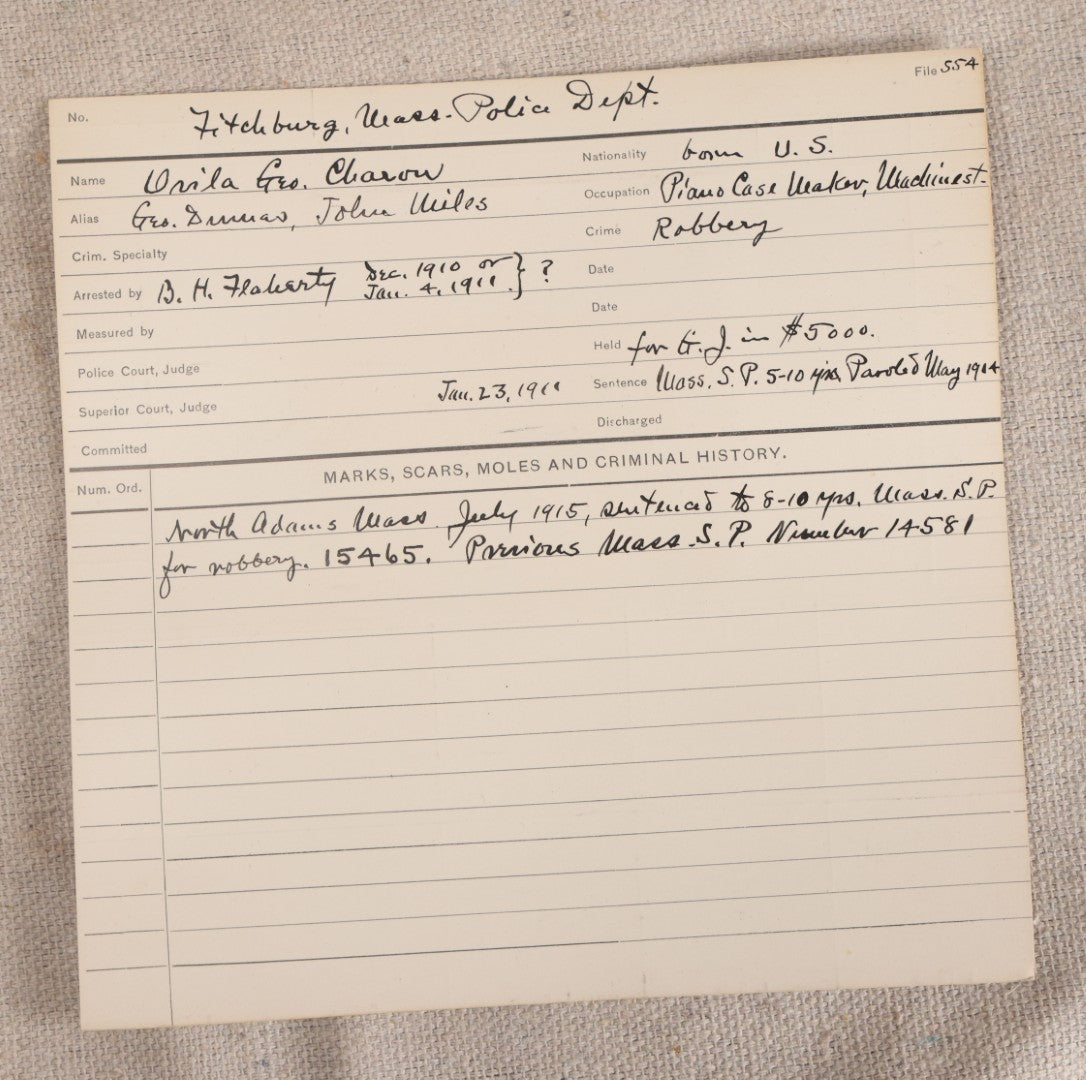 File 554
No. Fitchburg, Mass. Police Dept.
Name Orila Geo. Charon Nationality born U. S.
Alias Geo. Dumas, John Miles Occupation Piano Case Maker, Machinest.
Crim. Specialty Crime Robbery
Arrested by B. H. Flaherty Dec. 1910 or Jan. 4, 1911.} ? Date
Measured by Date
Police Court, Judge Held for G. J. in $5000.
Superior Court, Judge Jan. 23, 1911 Sentence Mass. S. P. 5-10 yrs. Paroled May 1914
Committed Discharged
Num. Ord. MARKS, SCARS, MOLES AND CRIMINAL HISTORY.
North Adams Mass. July 1915, sentenced to 8-10 yrs. Mass. S. P.
for robbery. 15465. Previous Mass. S. P. Number 14581